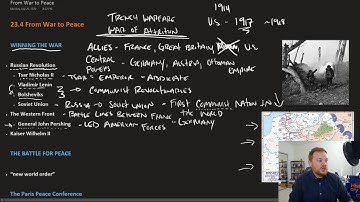 From War to Peace
23.4 From War to Peace
WINNING THE WAR
- Russian Revolution
- Tsar Nicholas II
- Vladimir Lenin
- Bolsheviks
- Soviet Union
- The Western Front
- General John Pershing
- Kaiser Wilhelm II
THE BATTLE FOR PEACE
- "new world order"
The Paris Peace Conference
TRENCH WARFARE
WAR OF ATTRITION
1914
US - 1917 ~1918
ALLIES - FRANCE, GREAT BRITAIN U.S.
CENTRAL POWERS - GERMANY, AUSTRIA, OTTOMAN EMPIRE
- TSAR = EMPEROR - ABDICATE
COMMUNIST REVOLUTIONARIES
- RUSSIA → SOVIET UNION - FIRST COMMUNIST NATION IN THE WORLD
- BATTLE LINES BETWEEN FRANCE
- LED AMERICAN FORCES - GERMANY